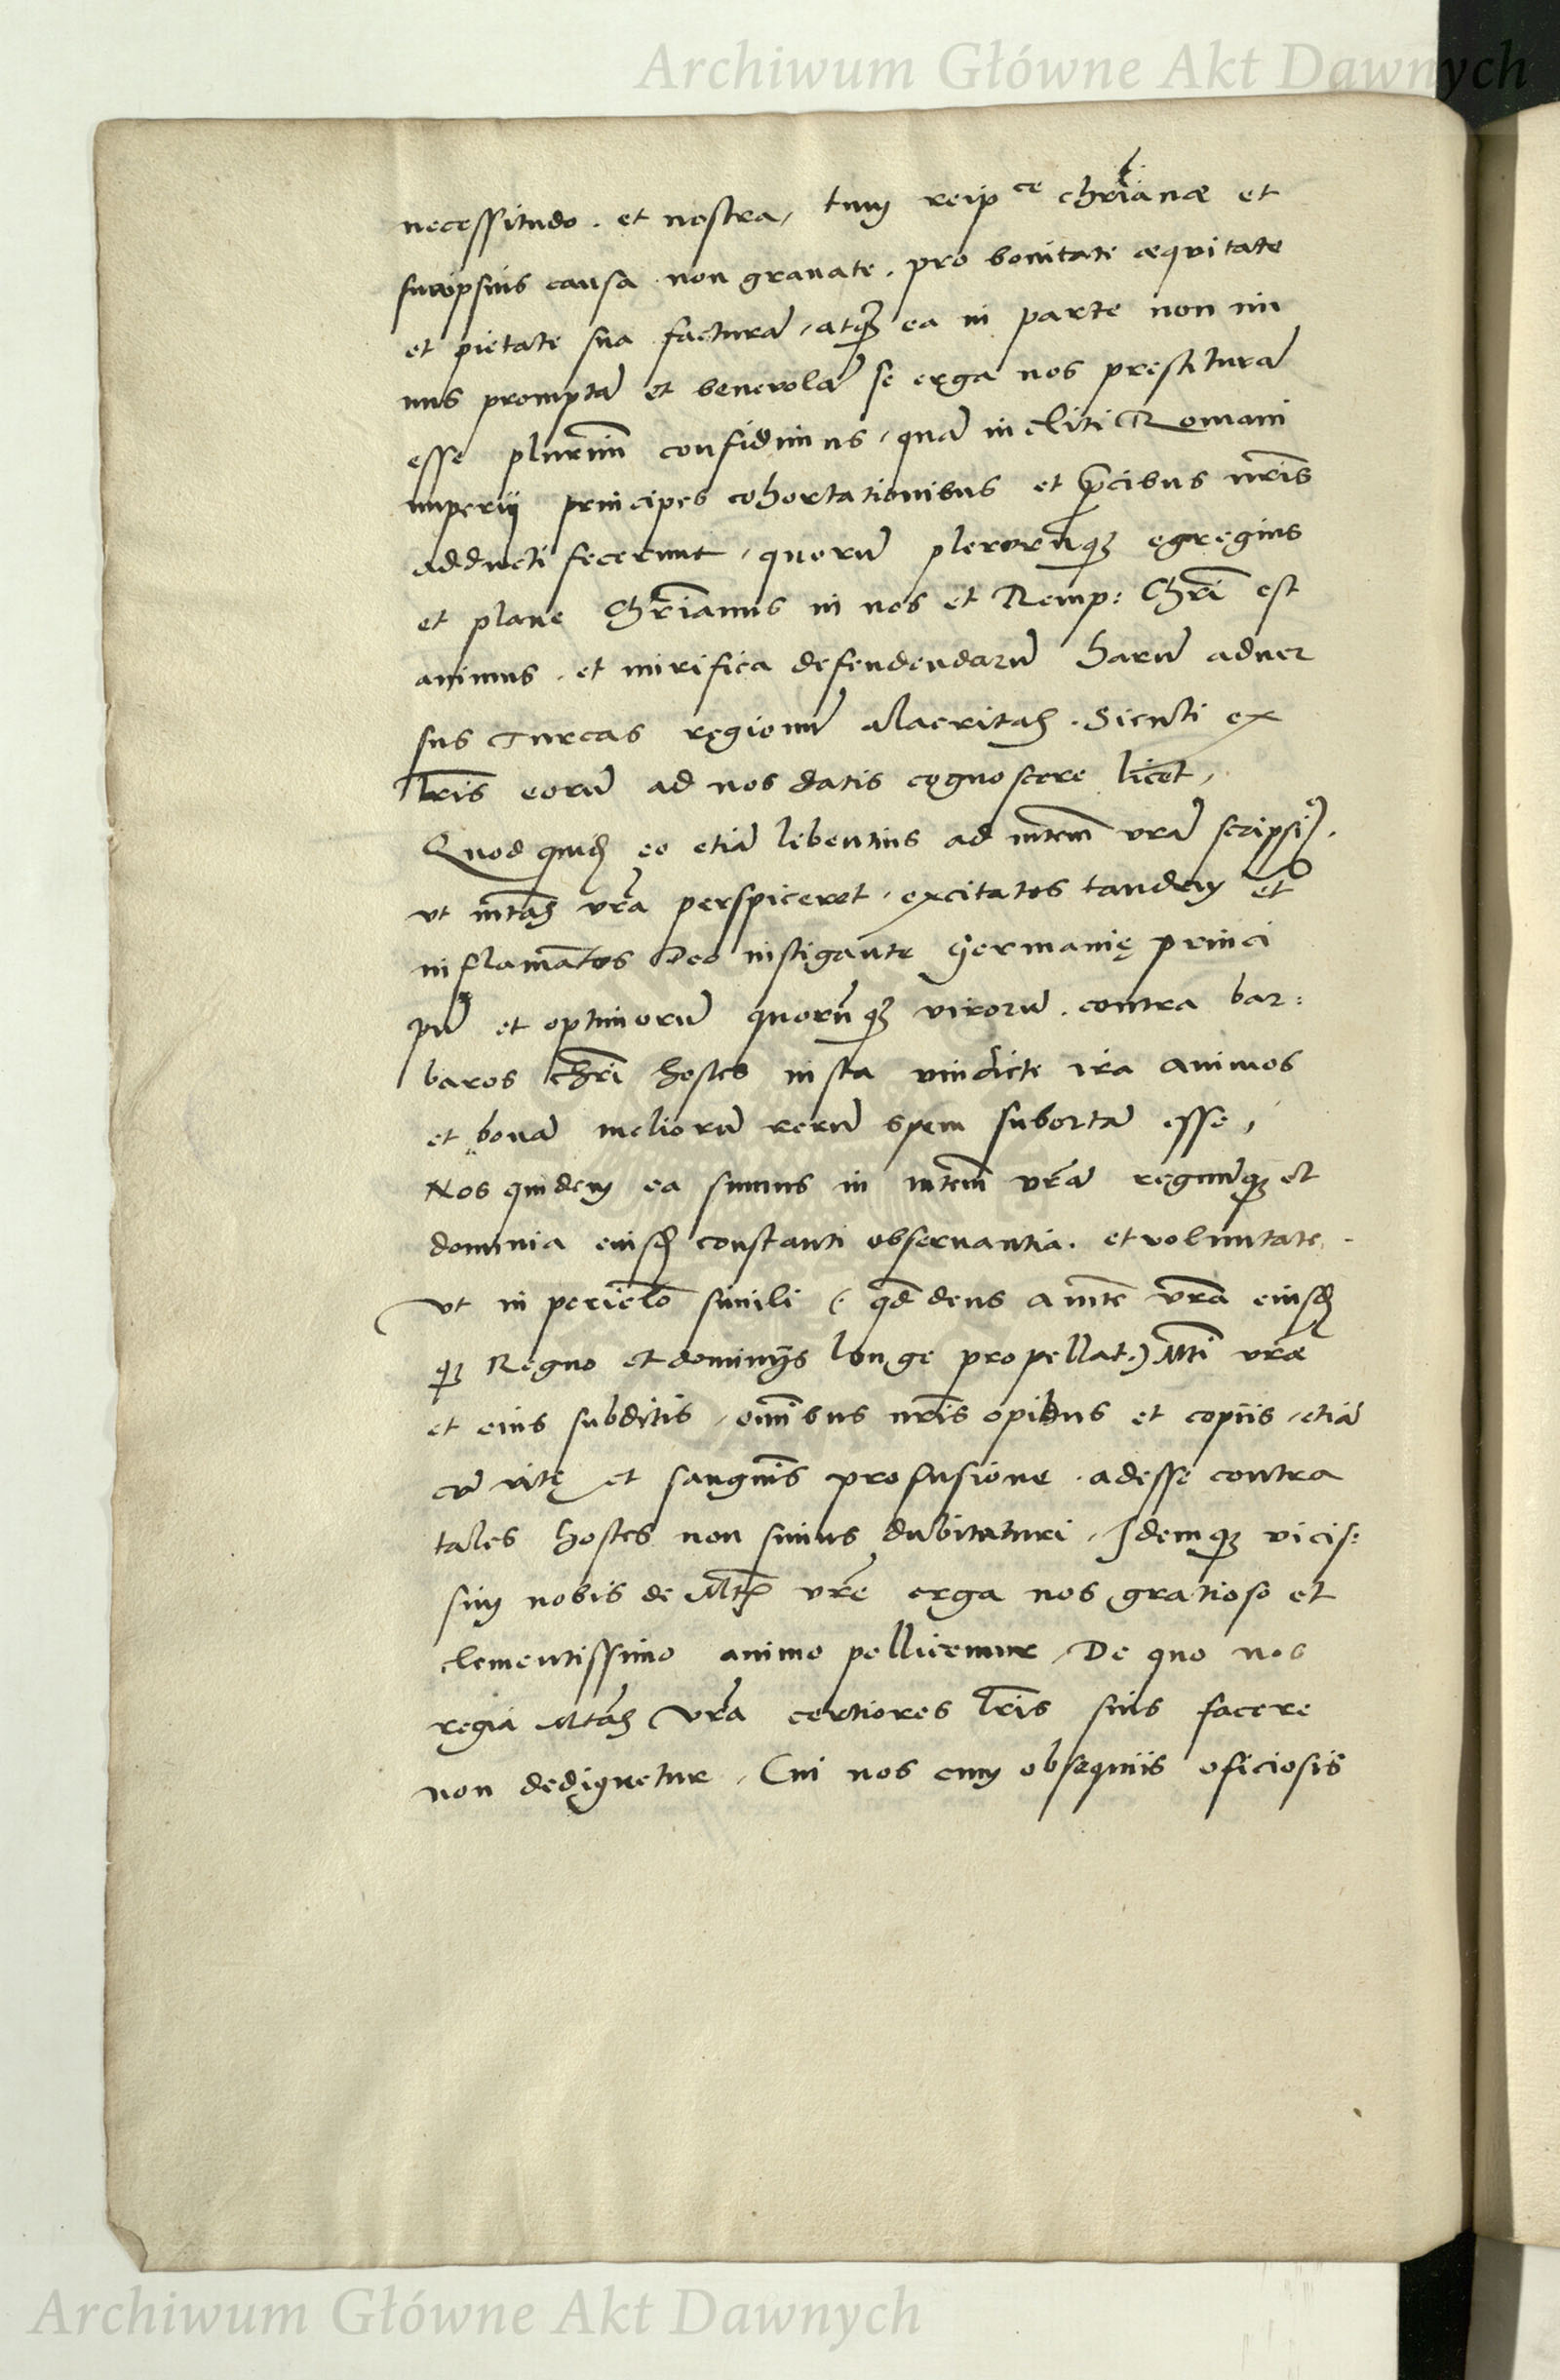 Archiwum Główne Akt Dawnych
necessitudo. et nostra, tum reip ce chr̃ianæ et
suiipsius causa non grauate. pro bonitate æquitate
et pietate sua facturã, atq̃ ea in parte non mi
nus promptã et beneuolã se erga nos prestiturã
esse plurim̃ confidimus, quã incliti Romani
imperij principes cohortationibus et p̃cibus nr̃is
adducti fecerunt, quorũ plerorũq; egregius
et plane Chr̃ianus in nos et Remp: Chr̃i est
animus, et mirifica defendendarũ harũ aduer
sus Turcas regionũ alacritas. Sicuti ex
lr̃is eorũ ad nos datis cognoscere licet,
Quod quid eo etiã libentius ad mtem̃ vr̃ã scripsi.
vt mtas̃ vr̃a perspiceret, excitatos tandem et
inflamatos Deo instigante Germanię princi
pũ et optimorũ quorũq; virorũ. contra bar:
baros chr̃i hostes iusta vindicte ira animos
et bonã meliorũ rerũ spem subortã esse,
Nos quidem ea sumus in mtem̃ vr̃ã regnũq; et
dominia eiusd̃ constanti obseruantia. et voluntate.
vt in pericl̃o simili (. qd̃ deus a mte vr̃a eiusd̃
q; Regno et dominijs longe propellat.) Mti vr̃æ
et eius subditis, om̃ibus nr̃is opibus et copiis, etiã
cũ vitę et sangui̊s profusione. adesse contra
tales hostes non simus dubitaturi, Idemq; vicis:
sim nobis de Mtis vr̃e erga nos gratioso et
clementissimo animo pollicemur, De quo nos
regia Mtas̃ vr̃a certiores lr̃is suis facere
non dedignetur, Cui nos cum obsequiis oficiosis
Archiwum Główne Akt Dawnych